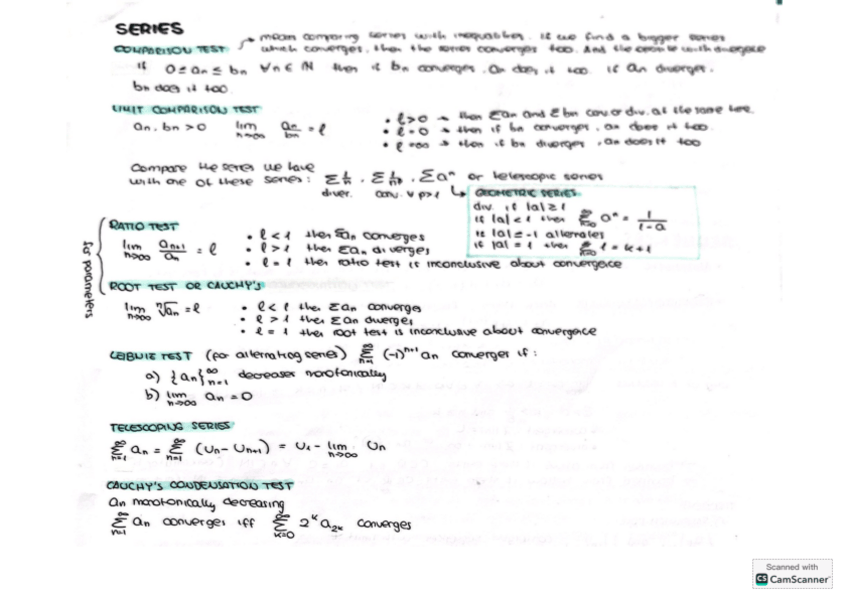 SERIES
COMPARISON TEST → mean comparing series with inequalities. If we find a bigger series
which converges, then the series converges too. And the opposite with divergence
If 0 ≤ an ≤ bn ∀n ∈ ℕ then if bn converges, an does it too. If an diverges,
bn does it too.
LIMIT COMPARISON TEST
an, bn > 0 lim n→∞ an/bn = ℓ
• ℓ>0 → then Σan and Σbn conv. or div. at the same time.
• ℓ=0 → then if bn converges, an does it too.
• ℓ=∞ → then if bn diverges, an does it too
Compare the series we have
with one of these series: Σ 1/n, Σ 1/n^p, Σ a^n or telescopic series
diver. conv. ∀ p>1
GEOMETRIC SERIES
div. if |a| ≥ 1
if |a| < 1 then Σ n=0 ∞ a^n = 1/(1-a)
is |a| = -1 alternates
if |a| = 1 then Σ 1 = k+1
for parameters
RATIO TEST
lim n→∞ an+1/an = ℓ
• ℓ < 1 then Σan converges
• ℓ > 1 then Σan diverges
• ℓ = 1 the ratio test is inconclusive about convergence
ROOT TEST OR CAUCHY'S
lim n→∞ ⁿ√an = ℓ
• ℓ < 1 then Σan converges
• ℓ > 1 then Σan diverges
• ℓ = 1 the root test is inconclusive about convergence
LEIBNIZ TEST (for alternating series) Σ n=1 ∞ (-1)^n+1 an converges if:
a) {an}∞ n=1 decreases monotonically
b) lim n→∞ an = 0
TELESCOPING SERIES
Σ n=1 ∞ an = Σ n=1 ∞ (Un - Un+1) = U1 - lim n→∞ Un
CAUCHY'S CONDENSATION TEST
an monotonically decreasing
Σ n=1 ∞ an converges iff Σ k=0 ∞ 2^k a2^k converges
Scanned with
CS CamScanner